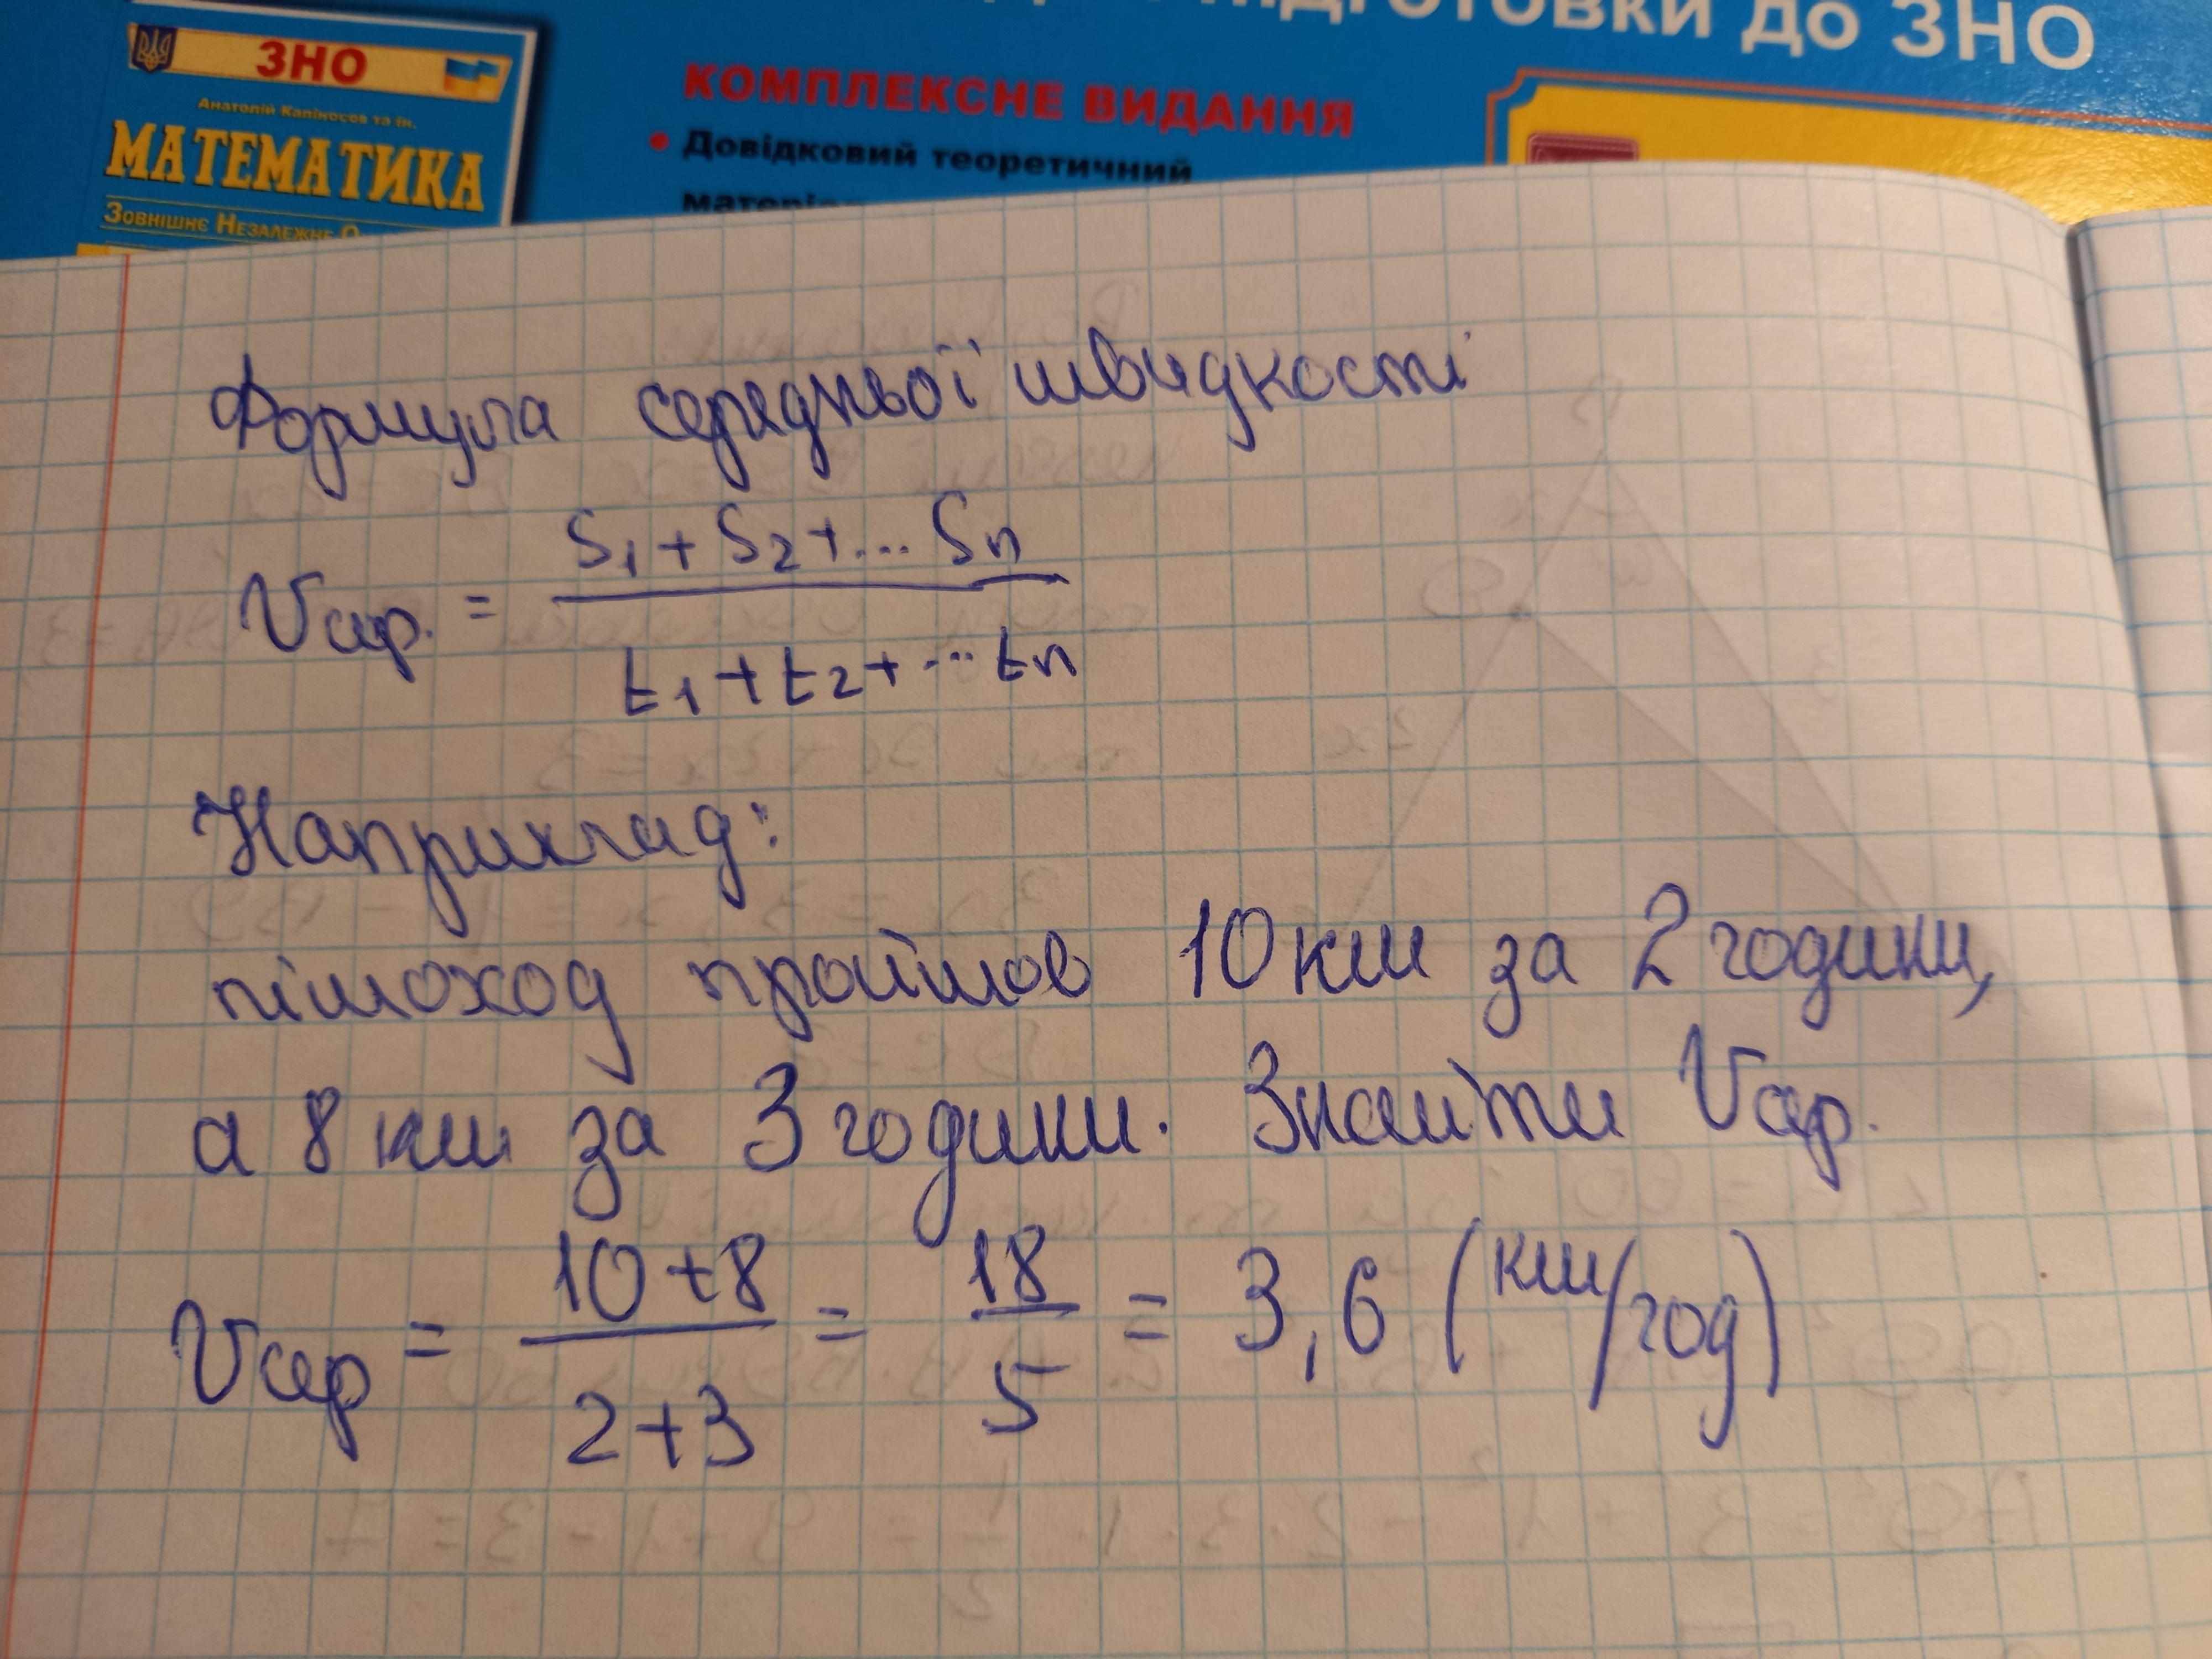 підготовки до ЗНО
ЗНО
Анатолій Капіносов та ін.
МАТЕМАТИКА
Зовнішнє Незалежне
КОМПЛЕКСНЕ ВИДАННЯ
• Довідковий теоретичний
Формула середньої швидкості
Vср. = S1 + S2 + ... Sn / t1 + t2 + ... tn
Наприклад:
пішоход пройшов 10 км за 2 години,
а 8 км за 3 години. Знайти Vср.
Vср = 10+8 / 2+3 = 18 / 5 = 3,6 (км/год)